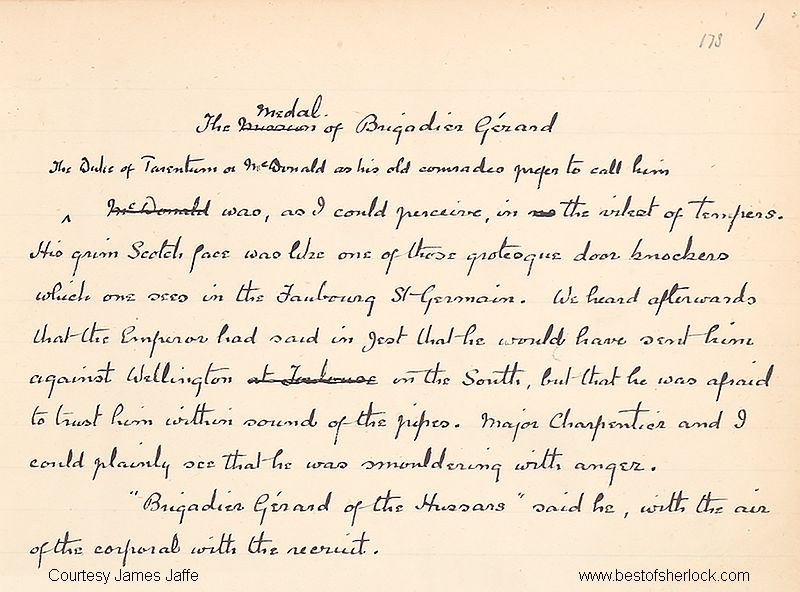 1
178
Medal.
The Mission of Brigadier Gérard
The Duke of Tarentum or McDonald as his old comrades prefer to call him
^ McDonald was, as I could perceive, in no the vilest of tempers.
His grim Scotch face was like one of those grotesque door knockers
which one sees in the Faubourg St Germain. We heard afterwards
that the Emperor had said in jest that he would have sent him
against Wellington at Toulouse in the South, but that he was afraid
to trust him within sound of the pipes. Major Charpentier and I
could plainly see that he was smouldering with anger.
"Brigadier Gérard of the Hussars" said he, with the air
of the corporal with the recruit.
Courtesy James Jaffe
www.bestofsherlock.com